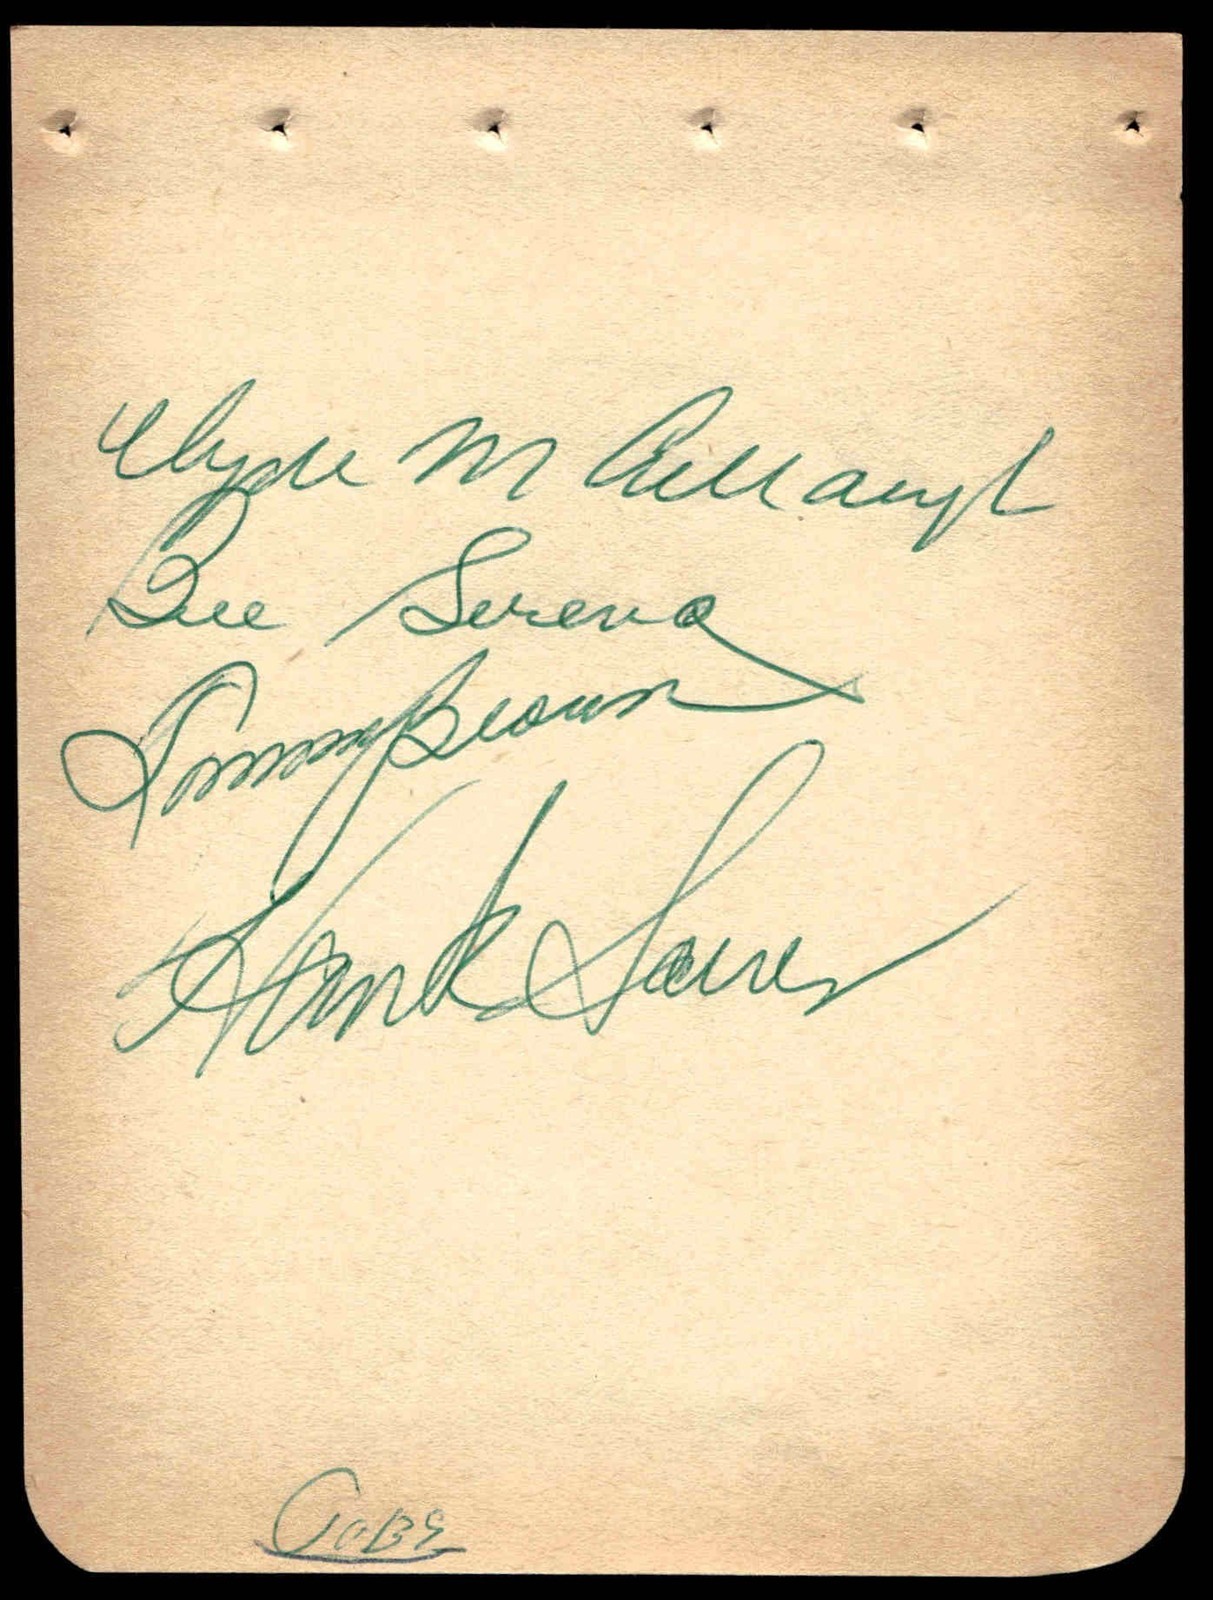 Clyde McCullough
Bill Serena
Tommy Brown
Hank Sauer
CUBS